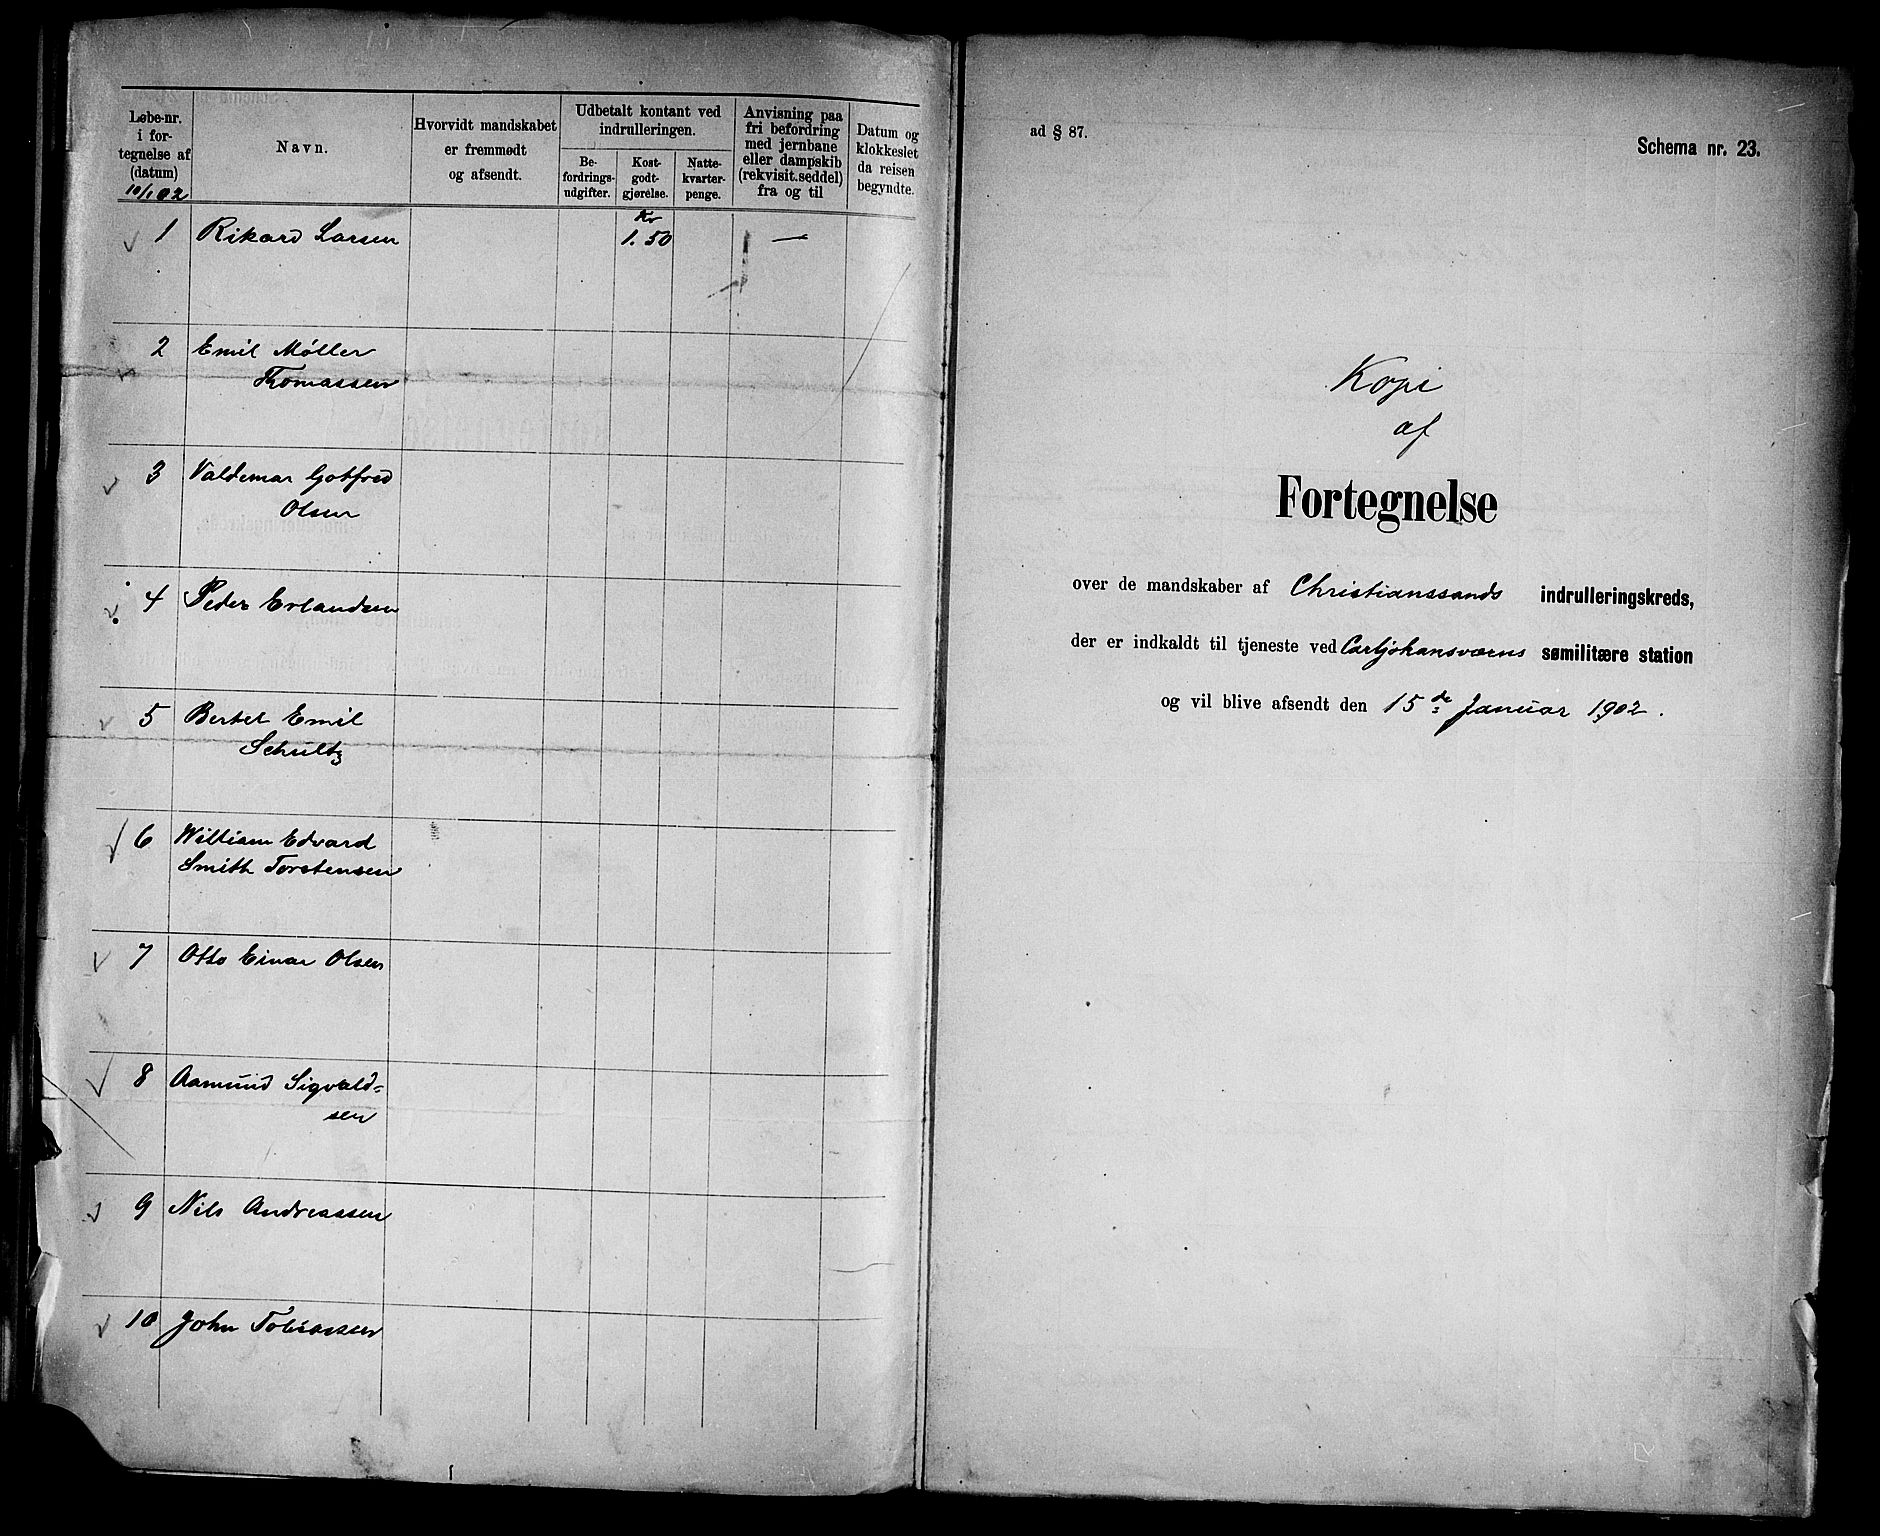 Løbe-nr. i for-tegnelse af (datum) 10/1 02
Navn.
Hvorvidt mandskabet er fremmødt og afsendt.
Udbetalt kontant ved indrulleringen.
Be-fordrings-udgifter.
Kost-godt-gjørelse.
Natte-kvarter-penge.
Anvisning paa fri befordring med jernbane eller dampskib (rekvisit.seddel) fra og til
Datum og klokkeslet da reisen begyndte.
Kr
1 Rikard Larsen 1.50 —
2 Emil Møller
Thomassen
3 Valdemar Gotfred
Olsen
4 Peder Erlandsen
5 Bertel Emil
Schultz
6 William Edvard
Smith Torstensen
7 Otto Einar Olsen
8 Aamund Sigvald=
sen
9 Nils Andreassen
10 John Tobiassen
ad § 87.
Schema nr. 23.
Kopi
af
Fortegnelse
over de mandskaber af Christianssands indrulleringskreds,
der er indkaldt til tjeneste ved Carljohansværns sømilitære station
og vil blive afsendt den 15de Januar 1902.